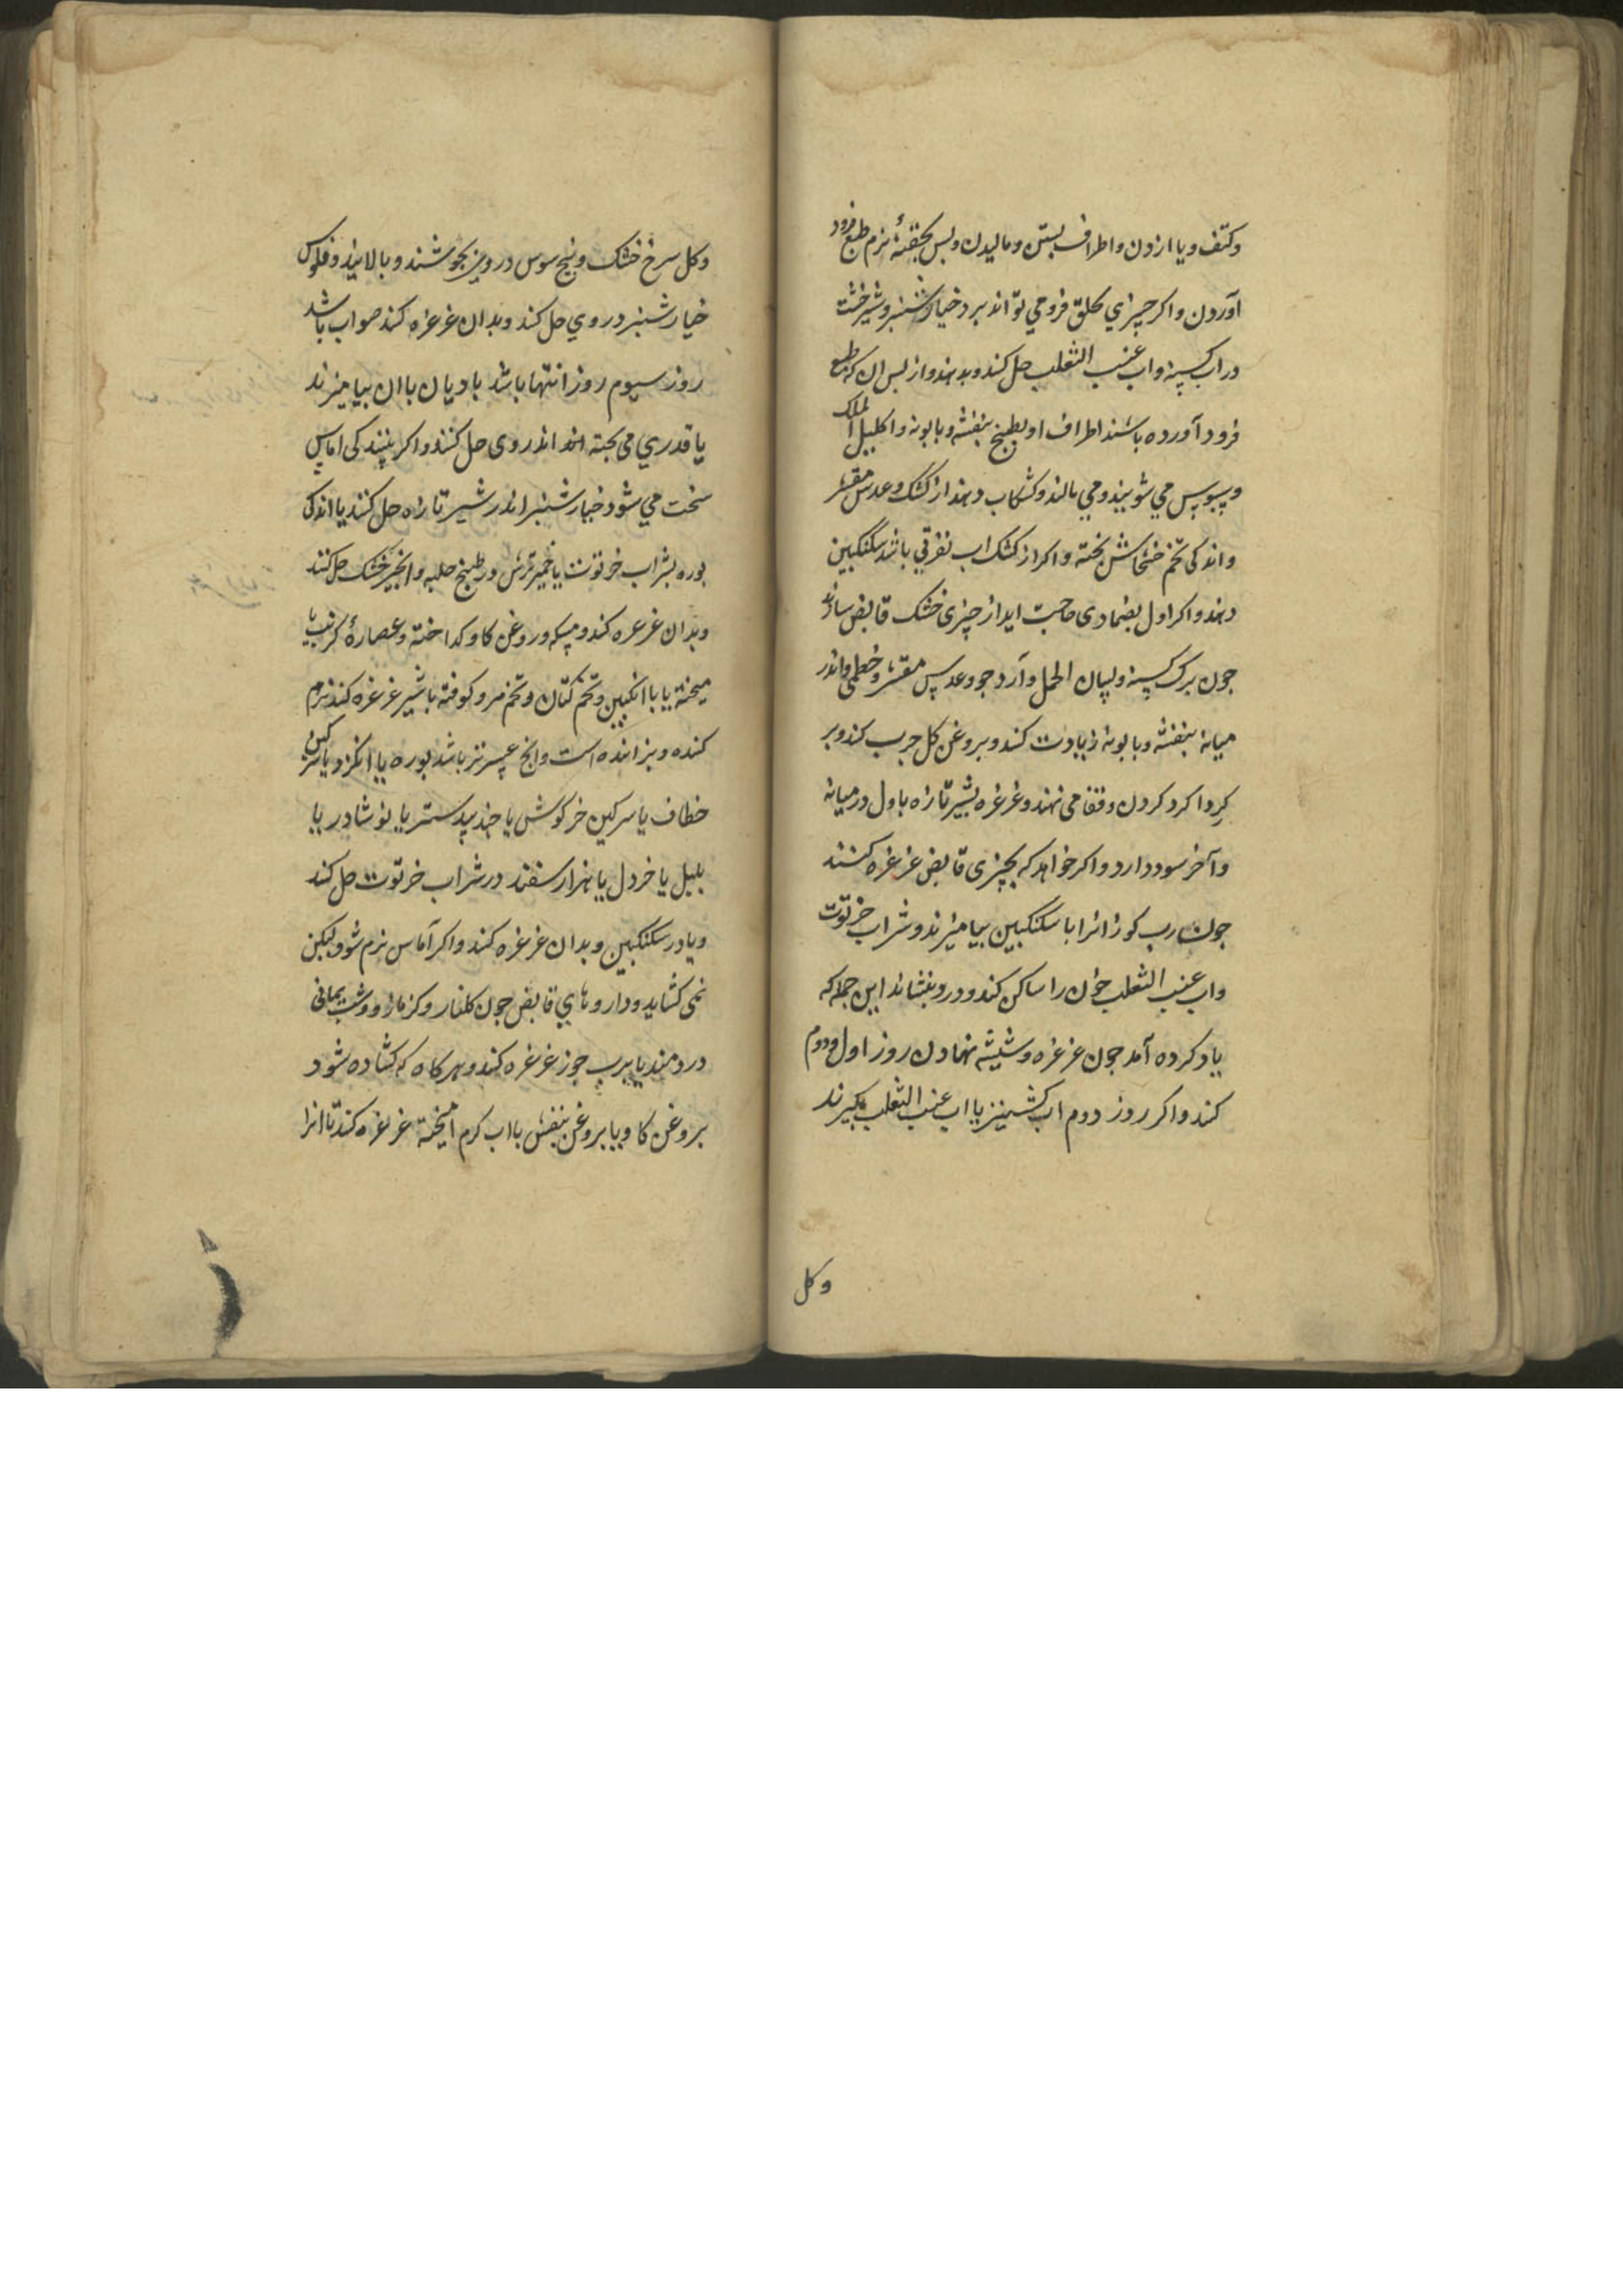 وکتف ویا ازدن واطراف بستن ومالیدن وپس بحقنهٔ نرم طبع فرود
آوردن واکر چیزي بحلق فرو مي تواند برد خیارشنبر وشیرخشت
در اب کسنه واب عنب الثعلب حل کند وبدهند واز پس ان که طبع
فرود آورده باشند اطراف او بطبیخ بنفشه وبابونه واکلیل الملک
وسبوس مي شویند ومي مالند وکشکاب دهند از کشک وعدس مقشر
واندکی تخم خشخاش پخته واکر از کشک اب نفرتي باشد سکنکبین
دهند واکر اول بضمادی حاجت اید از چیزی خشک قابض سازند
جون برک کسنه ولسان الحمل وآرد جو وعدس مقشر وخطمی واندر
میانه بنفشه وبابونه زیادت کند وبروغن کل جرب کند وبر
کردا کرد کردن وقفا می نهند وغرغره بشیر تازه باول ودر میانه
وآخر سود دارد واکر خواهد که بچیزی قابض غرغره کنند
جون رب کوز انرا با سکنکبین بیامیزند وشراب خرتوت
واب عنب الثعلب خون را ساکن کند ودرو بنشاند این جمله که
یاد کرده آمد جون غرغره وشیشه نهادن روز اول ودوم
کند واکر روز دوم اب کشنیز یا اب عنب الثعلب بکیرند
وکل
وکل سرخ خشک وبیخ سوس در وی بجوشند وبالایند وفلوس
خیارشنبر در وي حل کند وبدان غرغره کند صواب باشد
روز سیوم روز انتها باشد بادیان باان بیامیزند
یا قدري می بخته اندر وی حل کنند واکر بینند کی اماس
سخت مي شود خیارشنبر اندر شیر تازه حل کنند یا اندکی
بوره بشراب خرتوت یا خمیر ترش در طبیخ حلبه وانجیر خشک حل کنند
وبدان غرغره کند ومسکه وروغن کاو کداخته وعصارهٔ کرنب یا
میخته یا با انکبین وتخم کتان وتخم مرو کوفته با شیر غرغره کند نرم
کننده وپزانده است وانج عسرتر باشد بوره یا انکزد یا سرکین
خطاف یا سرکین خرکوش یا جندبیدستر یا نوشادر یا
پلپل یا خردل یا هزار سفند در شراب خرتوت حل کند
ویا در سکنکبین وبدان غرغره کند واکر آماس نرم شود لیکن
نمی کشاید وداروهاي قابض جون کلنار وکزمازو وشب یمانی
در دمند یا برب جوز غرغره کند وهرکاه که کشاده شود
بروغن کاو یا بروغن بنفش با اب کرم امیخته غرغره کند تا انرا